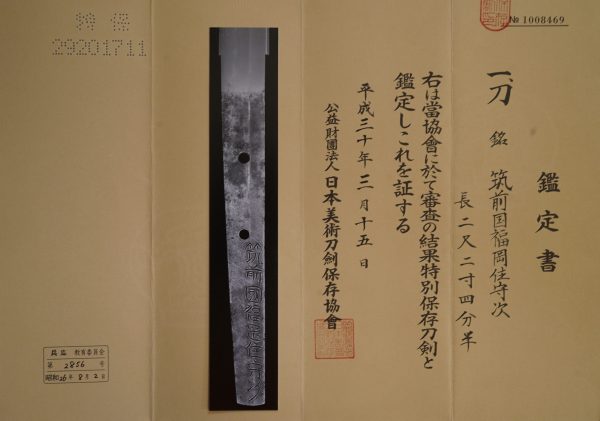 № 1008469
鑑定書
一、刀 銘 筑前国福岡住守次
長二尺二寸四分半
右は當協會に於て審査の結果特別保存刀剣と
鑑定しこれを証する
平成三十年三月十五日
公益財團法人日本美術刀剣保存協會
筑前国福岡住守次
特保
29201711
教育委員会
第 2856 号
昭和26年8月2日